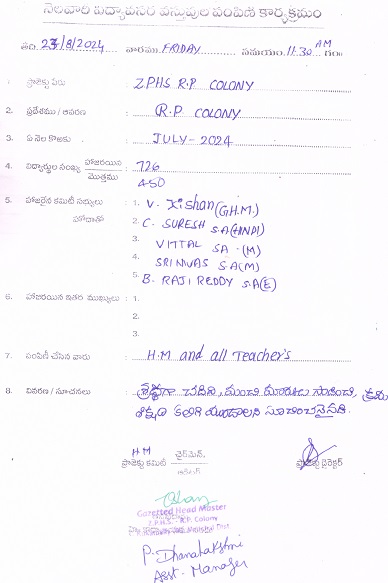 నెలవారి విద్యావసర వస్తువుల పంపిణి కార్యక్రమం
తేది. 23/8/2024 వారము FRIDAY సమయం. 11.30 AM గం॥
1. ప్రాజెక్టు పేరు : ZPHS R.P COLONY
2. ప్రదేశము / ఆవరణ : R.P COLONY
3. ఏ నెల కొఱకు : JULY-2024
4. విద్యార్థుల సంఖ్య హాజరయిన / మొత్తము : 726 / 450
5. హాజరైన కమిటీ సభ్యులు : 1. V. Kishan (GHM.)
హోదాతో 2. C. SURESH S.A (HINDI)
3. VITTAL SA -(M)
4. SRINIVAS SA(M)
5. B. RAJI REDDY S.A(E)
6. హాజరయిన ఇతర ముఖ్యులు : 1.
2.
3.
7. పంపిణీ చేసిన వారు : H.M and all Teacher's
8. వివరణ / సూచనలు : శ్రద్ధగా చదివి, మంచి మార్కులు సాధించి, క్రమ
శిక్షణ కలిగి యుండాలని సూచించనైనది.
HM చైర్మెన్.
ప్రాజెక్టు కమిటీ ప్రాజెక్టు డైరెక్టర్
Gazetted Head Master
Z.P.H.S. - R.P. Colony
P. Dhanalakshmi
Asst. Manager